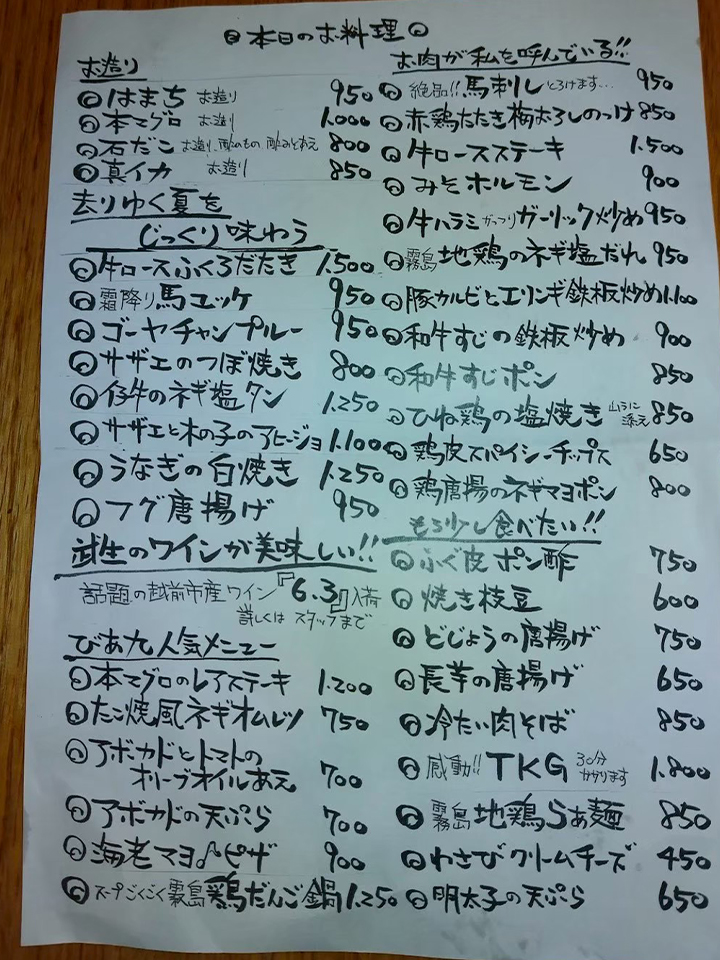 本日のお料理
お造り
はまち お造り 950
本マグロ お造り 1.000
石だこ お造り、酢のもの 酢みそあえ 800
真イカ お造り 850
去りゆく夏を
じっくり味わう
牛ロースふくろだたき 1.500
霜降り馬ユッケ 950
ゴーヤチャンプルー 950
サザエのつぼ焼き 800
仔牛のネギ塩タン 1.250
サザエと木の子のアヒージョ 1.100
うなぎの白焼き 1.250
フグ唐揚げ 950
武生のワインが美味しい!!
話題の越前市産ワイン『6.3』入荷
詳しくは スタッフまで
びあ九人気メニュー
本マグロのレアステーキ 1.200
たこ焼風ネギオムレツ 750
アボカドとトマトの
オリーブオイルあえ。 700
アボカドの天ぷら 700
海老マヨ♪ピザ 900
スープごくごく霧島鶏だんご鍋 1.250
お肉が私を呼んでいる!!
絶品!!馬刺し とろけます… 950
赤鶏たたき梅おろしのっけ 850
牛ロースステーキ 1.500
みそホルモン 900
牛ハラミがっつりガーリック炒め 950
霧島地鶏のネギ塩だれ 950
豚カルビとエリンギ鉄板炒め 1.100
和牛すじの鉄板炒め 900
和牛すじポン 850
ひね鶏の塩焼き 添え 850
鶏皮スパイシーチップス 650
鶏唐揚のネギマヨポン 800
もう少し食べたい!!
ふぐ皮ポン酢 750
焼き枝豆 600
どじょうの唐揚げ 750
長芋の唐揚げ 650
冷たい肉そば 850
感動!!TKG 30分かかります 1.800
霧島地鶏らぁ麺 850
わさびクリームチーズ 450
明太子の天ぷら 650